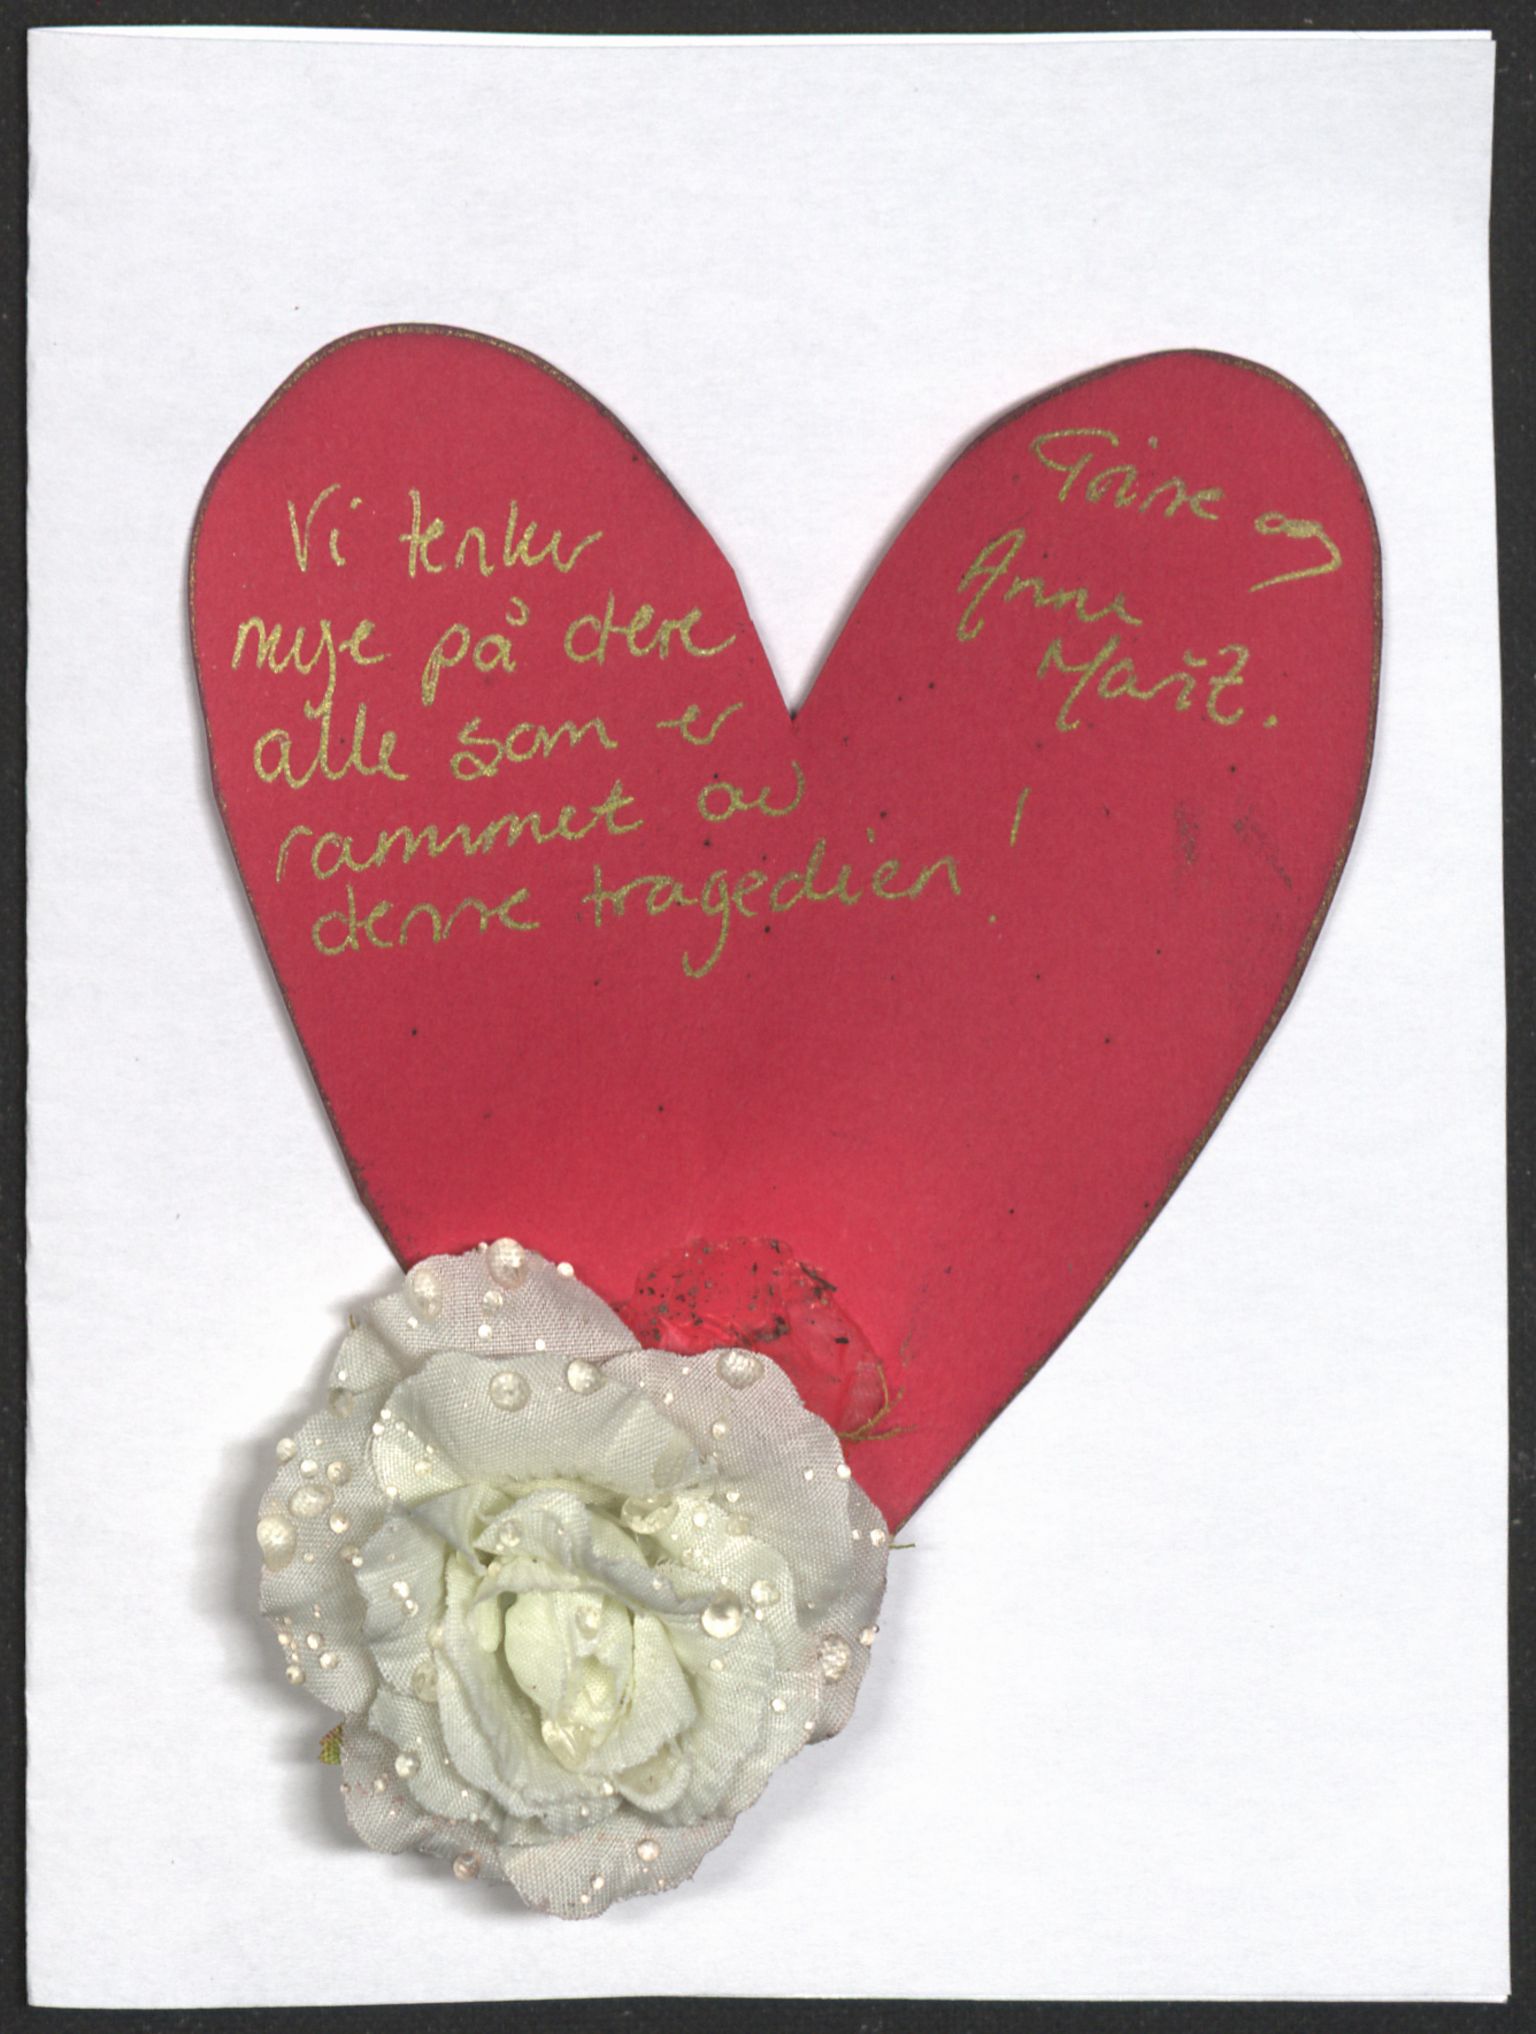 Vi tenker
mye på dere
alle som er
rammet av
denne tragedien!
og
Anne
Marit.